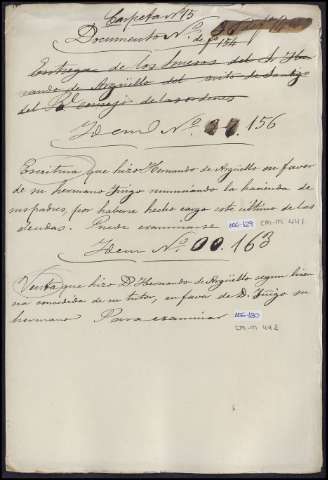 Carpeta nº 15
Documento Nº
de 154
Entrega de los bienes del d. Her
nando de Argüello del auto de
del Rl consejo de las ordenes
Idem Nº 156
Escritura que hizo Hernando de Argüello en favor
de su hermano Iñigo renunciando la hacienda de
sus padres, por haberse hecho cargo este ultimo de las
deudas. Puede examinarse 106-129 CM-M 441
Idem Nº 00. 163
Venta que hizo D. Hernando de Argüello segun licen
cia concedida de su tutor, en favor de D. Iñigo su
hermano Para examinar 106-130
CM-M 442